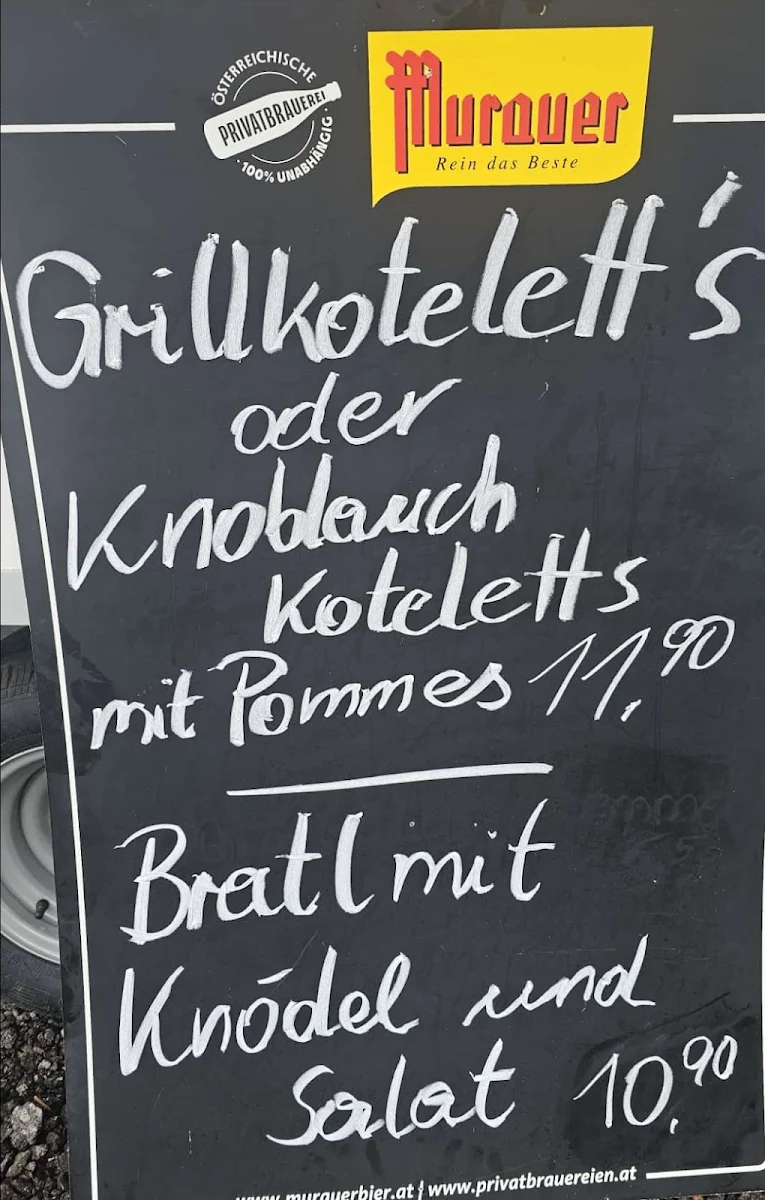 ÖSTERREICHISCHE
PRIVATBRAUEREI
· 100% UNABHÄNGIG ·
Murauer
Rein das Beste
Grillkotelett's
oder
Knoblauch
Koteletts
mit Pommes 11,90
Bratl mit
Knódel und
Salat 10,90
www.murauerbier.at | www.privatbrauereien.at